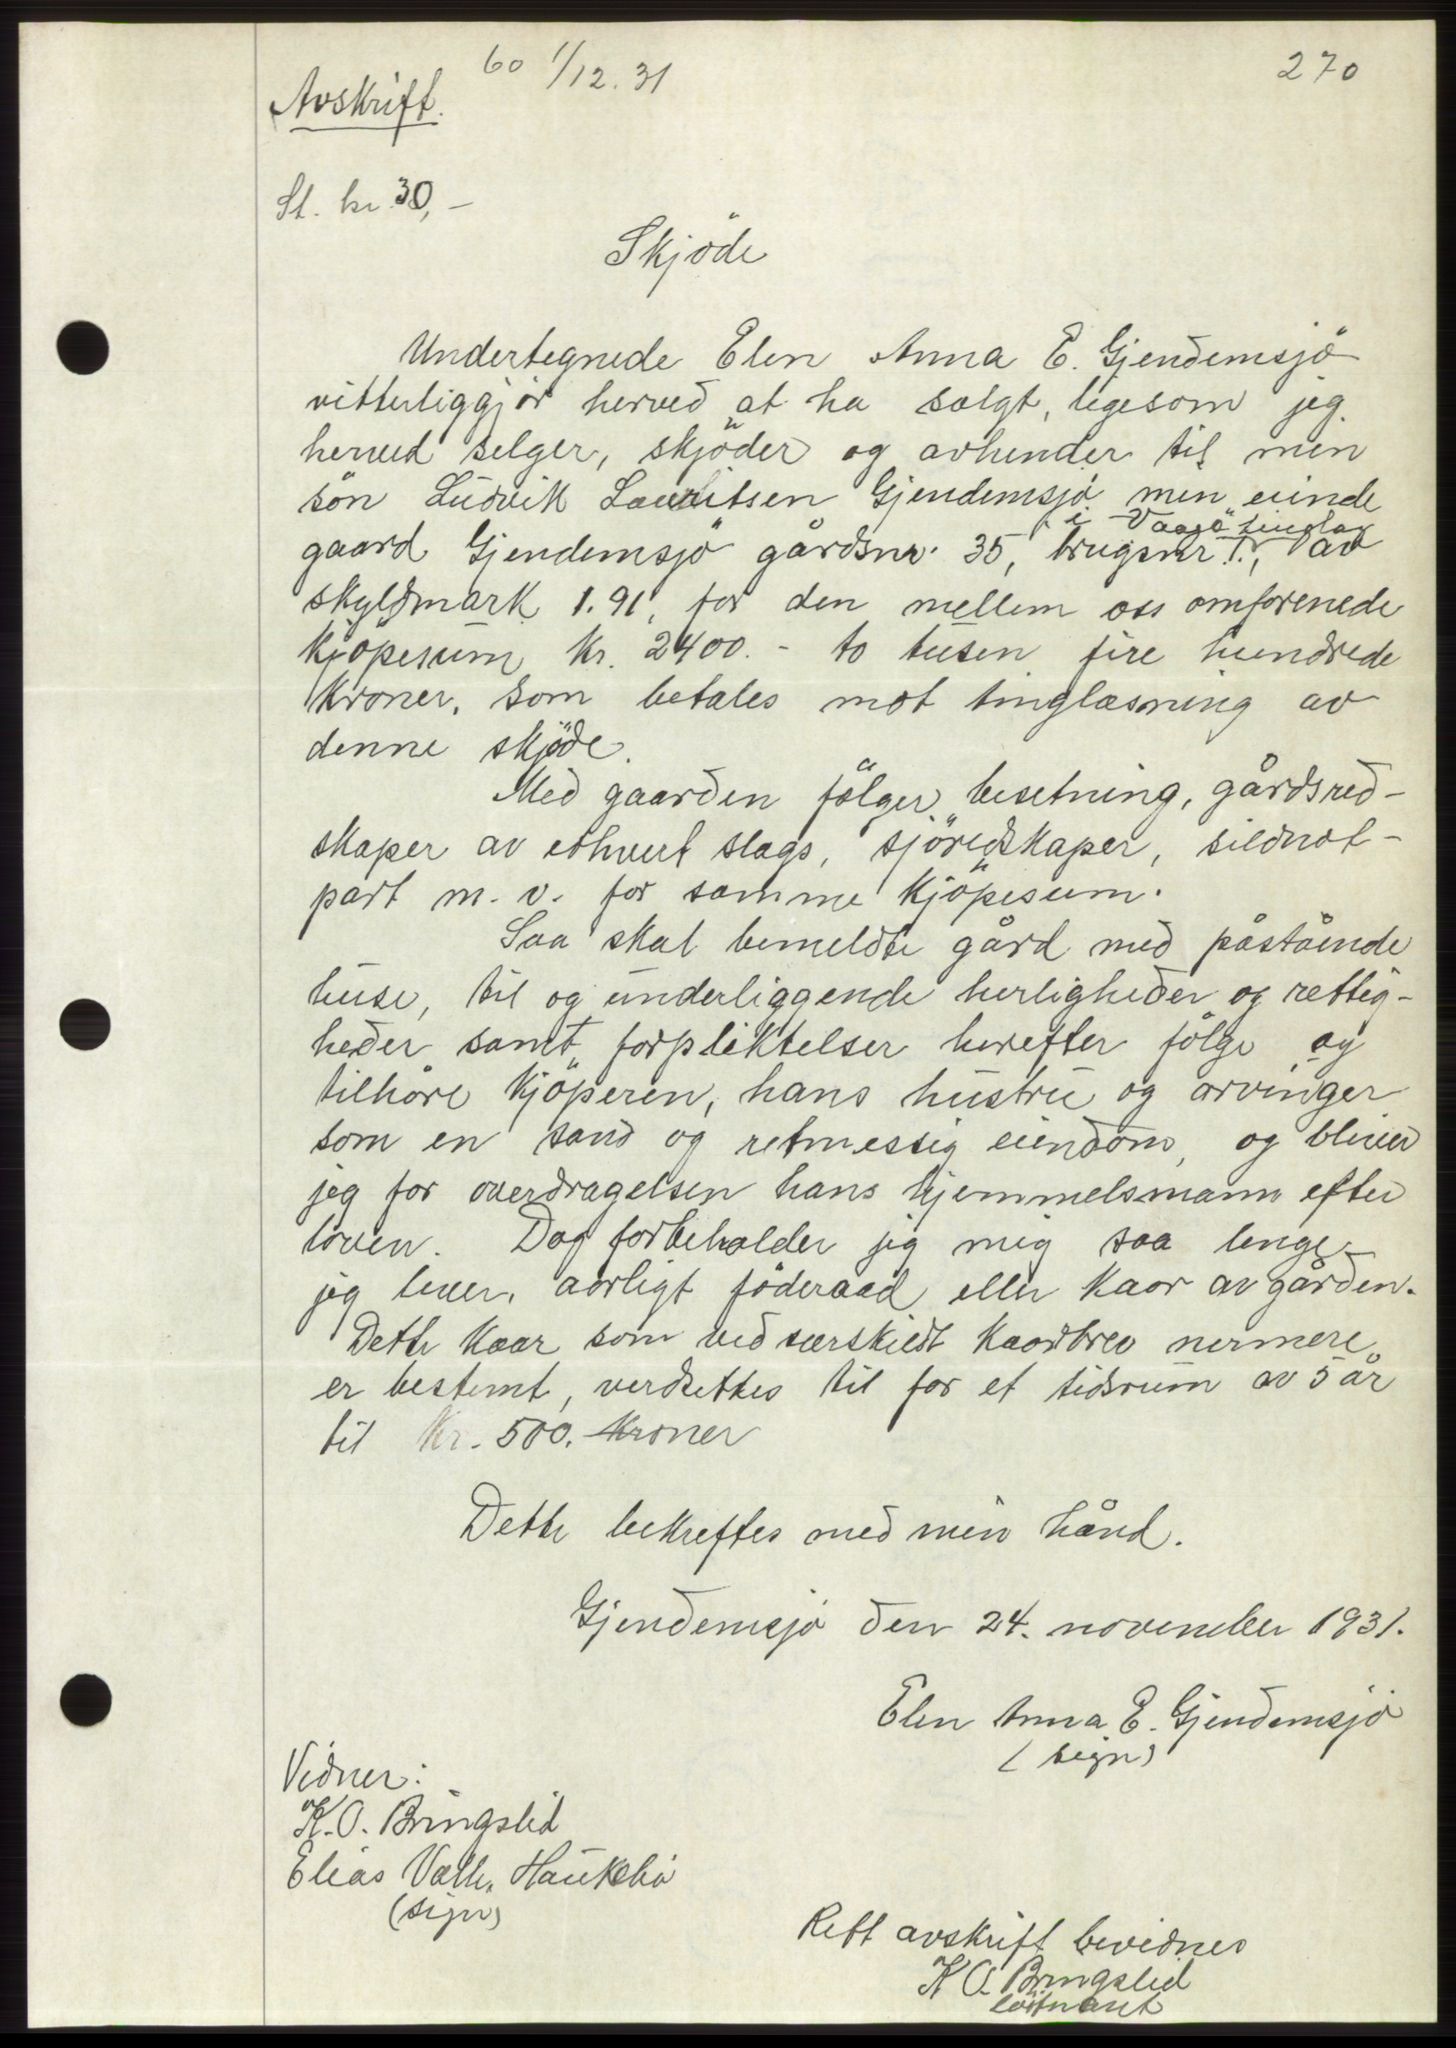 60 1/12.31
270
Avskrift.
St. kr. 30,-
Skjöde
Undertegnede Elen Anna E. Gjendemsjö
vitterliggjör herved at ha solgt, ligesom jeg
herved selger, skjöder og avhender til min
sön Ludvik Lauritsen Gjendemsjö min eiende
i Vaagö tinglag
gaard Gjendemsjö gårdsnr. 35, brugsnr 1., av
skyldmark 1.91, for den mellem oss omforenede
kjöpesum kr. 2400.- to tusen fire hundrede
kroner, som betales mot tinglæsning av
denne skjöde.
Med gaarden fölger besetning, gårdsred-
skaper av ethvert slags, sjöredskaper, sildnot-
part m. v. for samme kjöpesum.
Saa skal bemeldte gård med påstående
huse, til og underliggende herligheder og rettig-
heder samt forpliktelser herefter fölge og
tilhöre kjöperen, hans hustru og arvinger
som en sand og retmessig eiendom, og bliver
jeg for overdragelsen hans hjemmelsmann efter
loven. Dog forbeholder jeg mig saa lenge
jeg lever, aarligt föderaad eller kaar av gården.
Dette kaar som ved særskildt kaarbrev nermere
er bestemt, verdsettes til for et tidsrum av 5 år
til kr. 500. kroner
Dette bekreftes med min hånd.
Gjendemsjö den 24. november 1931.
Elen Anna E. Gjendemsjö
(sign)
Vidner:
K. O. Bringslid
Elias Haukebö
(sign)
Rett avskrift bevidnes
K O. Bringslid
löitnant